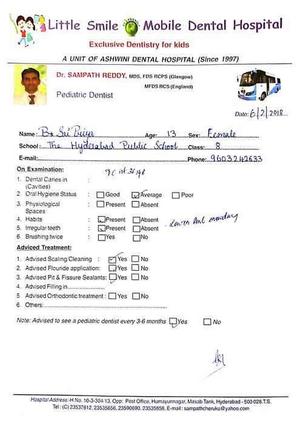 Little Smile Mobile Dental Hospital
Exclusive Dentistry for kids
A UNIT OF ASHWINI DENTAL HOSPITAL (Since 1997)
Dr. SAMPATH REDDY, MDS, FDS RCPS (Glasgow)
MFDS RCS (England)
Pediatric Dentist
Date: 6/2/2018
Name: B. Sri Priya Age: 13 Sex: Female
School: The Hyderabad Public School Class: 8
E-mail: Phone: 9603242633
On Examination:
1. Dental Caries in (Cavities) :
2. Oral Hygiene Status : Good Average Poor
3. Physiological Spaces : Present Absent
4. Habits : Present Absent
5. Irregular teeth : Present Absent Lower Ant
6. Brushing twice : Yes No
Adviced Treatment:
1. Advised Scaling Cleaning : Yes No
2. Advised Flouride application: Yes No
3. Advised Pit & Fissure Sealants: Yes No
4. Advised Filling in
5. Advised Orthodontic treatment : Yes No
6. Others:
Note: Advised to see a pediatric dentist every 3-6 months Yes No
Hospital Address: H.No. 10-3-304/13, Opp: Post Office, Humayunnagar, Masab Tank, Hyderabad - 500 028.T.S.
Tel: (C) 23537612, 23535658, 23590693, 23535658. E-mail: sampathcheruku@yahoo.com